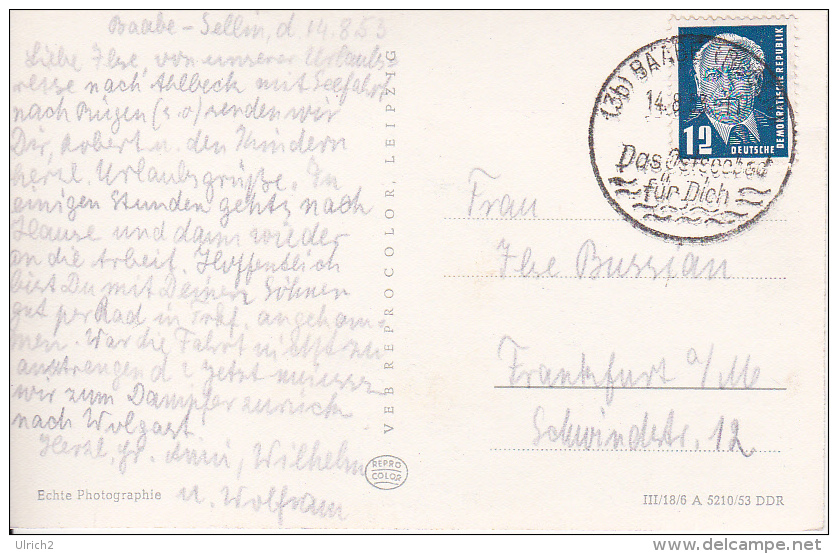 Baabe - Sellin, d. 14.8.53
Liebe Ilse von unserer Urlaubs
reise nach Ahlbeck mit Seefahrt
nach Rügen (s.o) senden wir
Dir, Robert u. den Kindern
herzl. Urlaubsgrüße. In
einigen Stunden gehts nach
Hause und dann wieder
an die Arbeit. Hoffentlich
bist Du mit Deinen Söhnen
gut per Rad in Frkf. angekom-
men. War die Fahrt nicht zu
anstrengend? Jetzt müssen
wir zum Dampfer zurück
nach Wolgast
Herzl. Gr. Anni, Wilhelm
u. Wolfram
Echte Photographie
VEB REPROCOLOR, LEIPZIG
REPRO
COLOR
(3b) BAABE
14.8.
Das Ostseebad
für Dich
12
DEUTSCHE
DEMOKRATISCHE REPUBLIK
Frau
Ilse Bussian
Frankfurt a/M.
Schwindstr. 12
III/18/6 A 5210/53 DDR